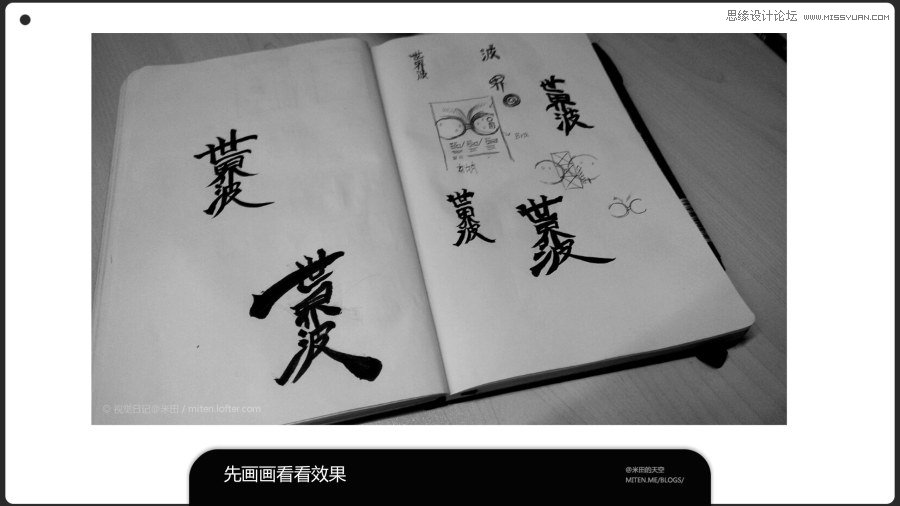 思缘设计论坛 WWW.MISSYUAN.COM
世界波
波
界
世界波
世界波
世界波
世界波
世界波
© 视觉日记@米田 / miten.lofter.com
先画画看看效果
@米田的天空
MITEN.ME/BLOGS/